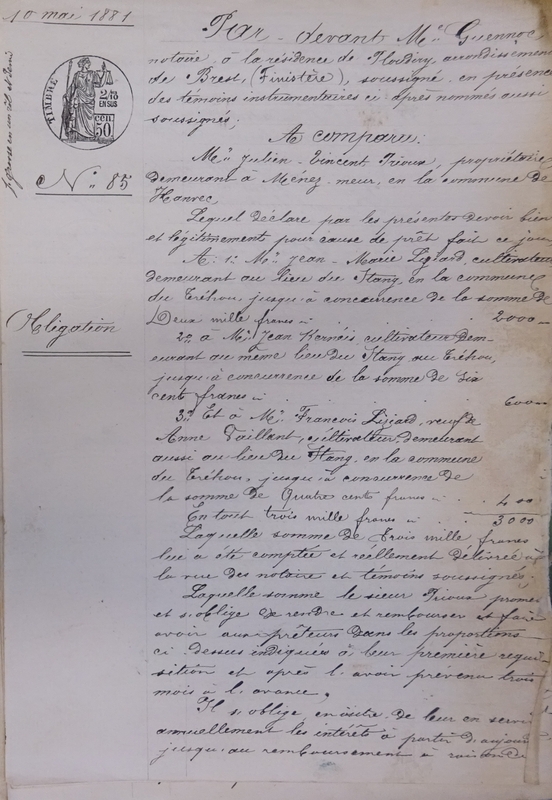 10 mai 1881
TIMBRE
2/10
EN SUS
50 CEN
N° 85
Obligation
Par-devant Me Guennoc
notaire à la résidence de Ploudiry, arrondissement
de Brest, (Finistère), soussigné en présence
des témoins instrumentaires ci-après nommés aussi
soussignés;
A comparu:
Mr Julien-Vincent Trioux, propriétaire
demeurant à Ménez-meur, en la commune de
Hanvec
Lequel déclare par les présentes devoir bien
et légitimement pour cause de prêt fait ce jour
A: 1° Mr Jean-Marie Lizard, cultivateur
demeurant au lieu du Stang, en la commune
du Tréhou, jusqu'à concurrence de la somme de
Deux mille francs 2000
2° à Mr Jean Kernéis, cultivateur dem-
eurant au même lieu du Stang au Tréhou,
jusqu'à concurrence de la somme de six
cents francs 600
3° Et à Mr François Lizard, veuf de
Anne Vaillant, cultivateur, demeurant
aussi au lieu du Stang, en la commune
du Tréhou, jusqu'à concurrence de
la somme de quatre cents francs 400
En tout trois mille francs 3000
Laquelle somme de Trois mille francs
lui a été comptée et réellement délivrée à
la vue des notaire et témoins soussignés.
Laquelle somme le sieur Trioux promet
et s'oblige de rendre et rembourser et faire
avoir aux prêteurs dans les proportions
ci-dessus indiquées à leur première réqui-
sition et après l'avoir prévenu trois
mois à l'avance,
Il s'oblige ensuite de leur en servir
annuellement les intérêts à partir d'aujourd
jusqu'au remboursement à raison de